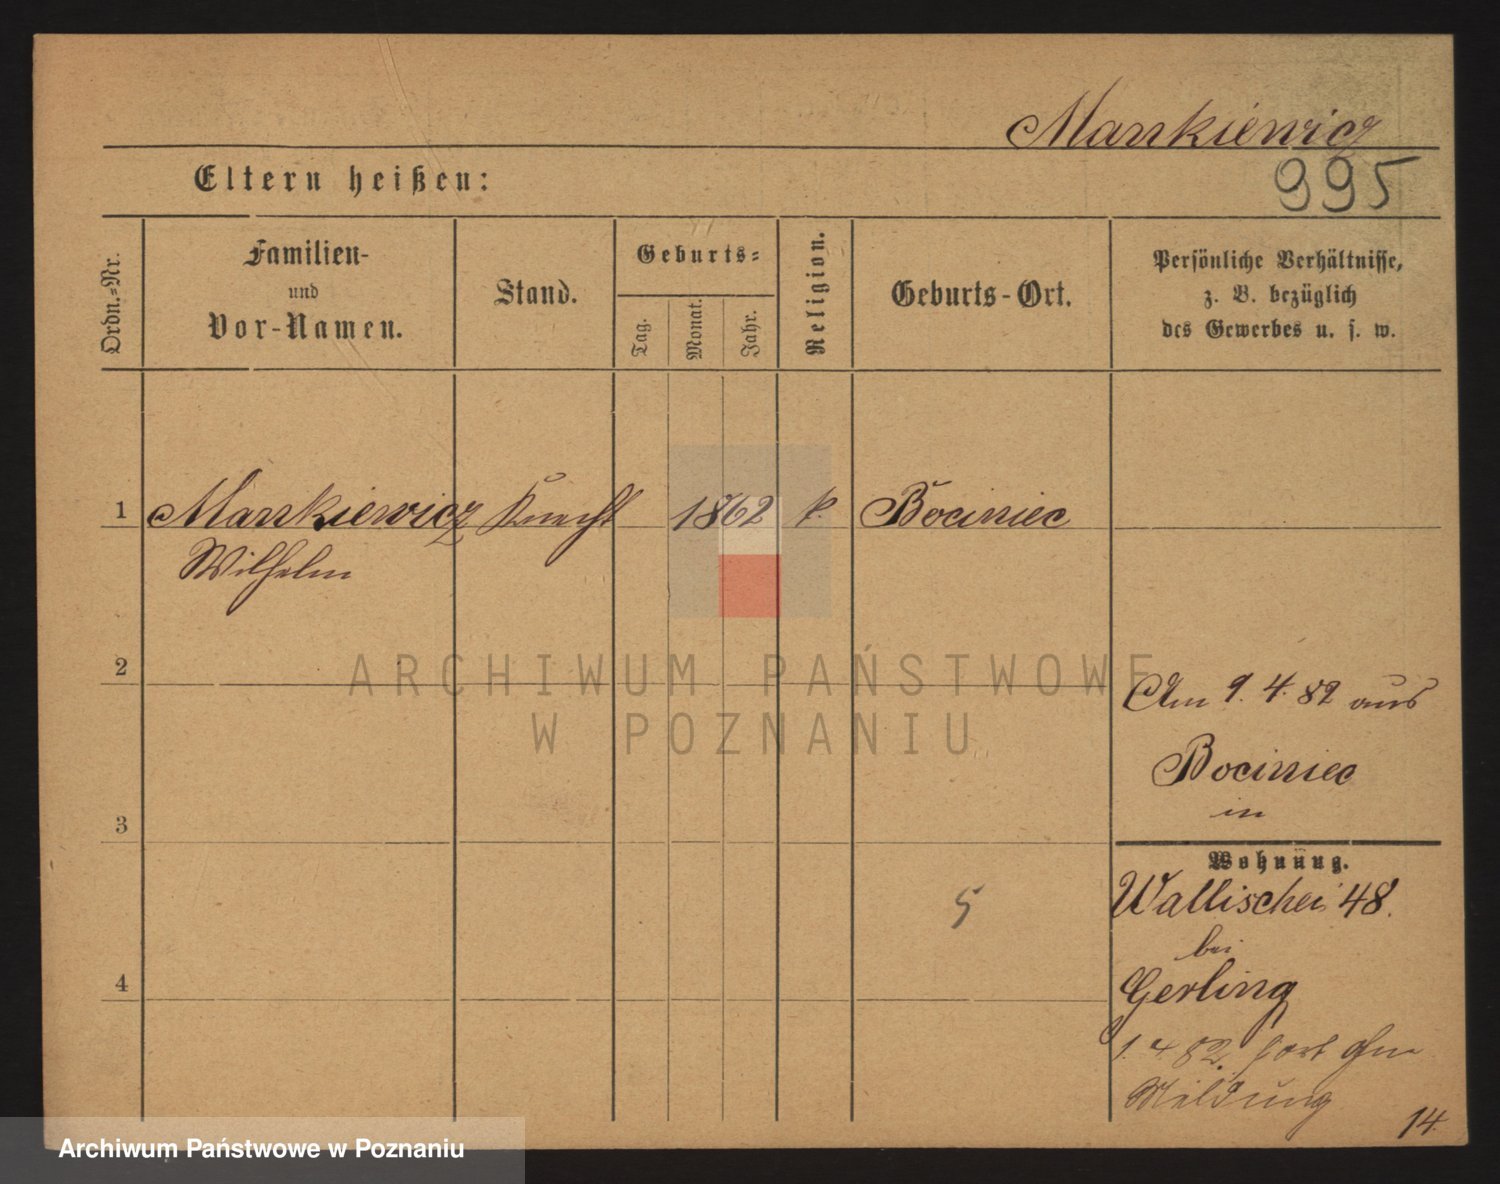 Mankiewicz
995
Eltern heißen:
Ordn.-Nr.
Familien-
und
Vor-Namen.
Stand.
Geburts-
Tag.
Monat.
Jahr.
Religion.
Geburts-Ort.
Persönliche Verhältnisse,
z. B. bezüglich
des Gewerbes u. s. w.
1 Mankiewicz Knecht 1862 k. Bociniec
Wilhelm
2
Am 9. 4. 82 aus
Bociniec
in
3
Wohnung.
Wallischei 48.
bei
4
Gerling
1. 4 82. fort ohne
Meldung
5
14.
ARCHIWUM PAŃSTWOWE
W POZNANIU
Archiwum Państwowe w Poznaniu